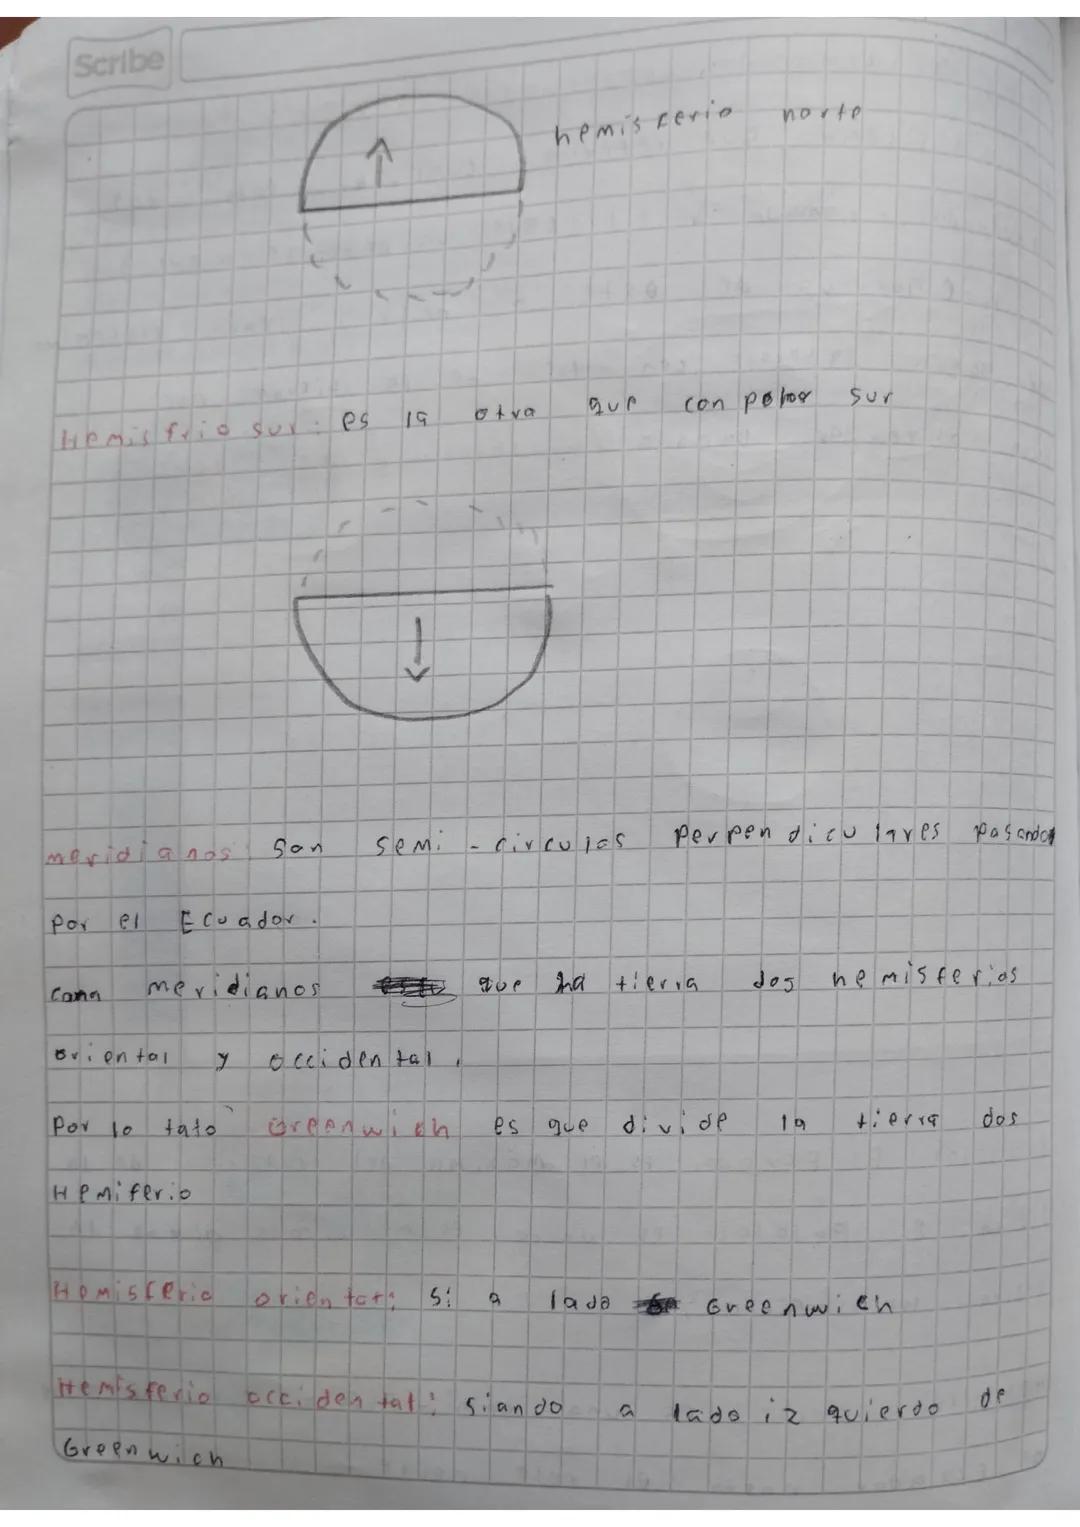 Scribe
hemisferio norte
Hemisfrio sur: es la otra que con polor sur
meridianos son semi-circulos perpendiculares pasando
por el Ecuador.
cana meridianos que ha tierra dos hemisferios
oriental y occidental.
Por lo tato Greenwich es que divide la tierra dos
Hemiferio
Hemisferio oriental: si a lado Greenwich
Hemisferio occidental: siando a lado izquierdo de
Greenwich